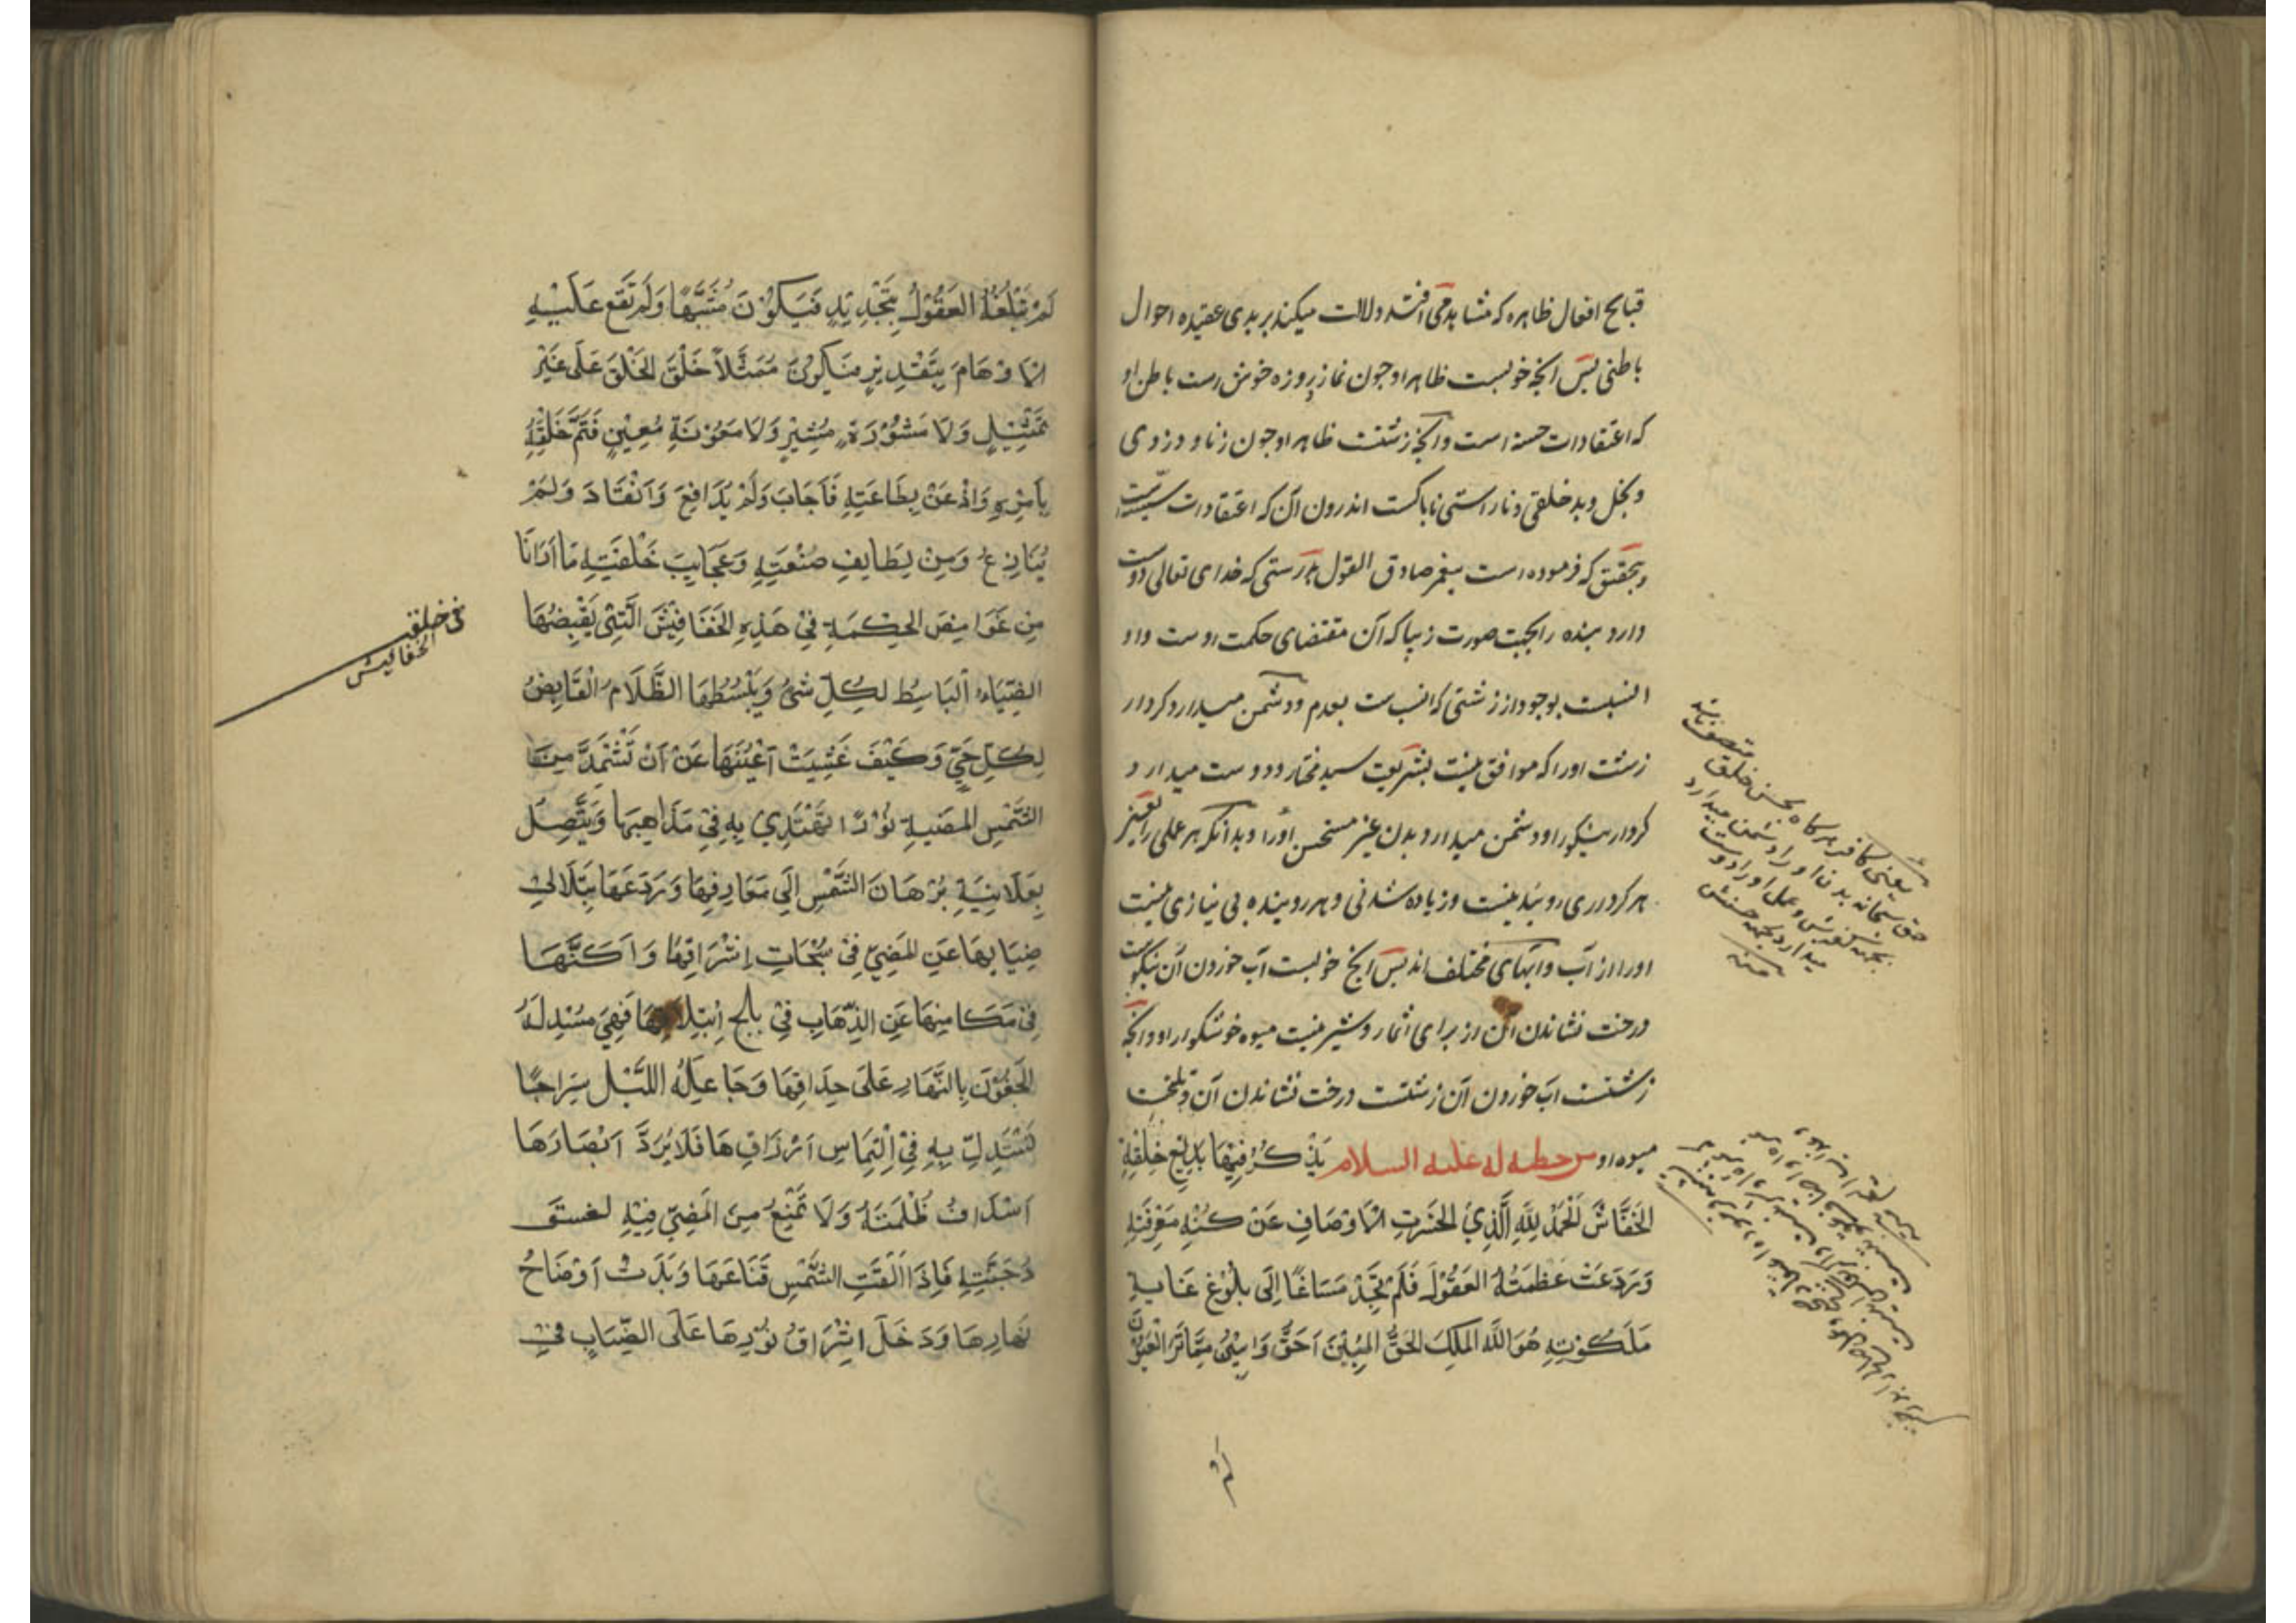 قبایح افعال ظاهره که مشاهده می افتد دلالت میکند بر بدی عقیده احوال
باطنی پس انچه خوبست ظاهر او چون نماز و روزه خوش است باطن او
که اعتقادات حسنه است و آنچه زشتست ظاهر او چون زنا و دزدی
و بخل و بد خلقی و ناراستی ناپاکست اندرون آن که اعتقادات سیئه است
و بتحقیق که فرموده است پیغمبر صادق القول براستی که خدای تعالی دوست
دارد بنده را بجهت صورت زیبا که آن مقتضای حکمت اوست و او
انسبت بوجود از زشتی که انسب است بعدم و دشمن میدارد کردار
زشت او را که موافق نیست بشریعت سید مختار و دوست میدارد
کردار نیکو را و دشمن میدارد بدن غیر مستحسن او را و بدانکه هر عملی را
هر کرداری روینیده نیست و زیاده شدنی و هر روینده بی نیازی نیست
او را از آب و آبهای مختلف اند پس آنچ خوبست آب خوردن آن نیکوست
درخت نشاندن آن از برای اثمار و شیرینست میوه خوشکوار او و انچه
زشتست آب خوردن آن زشتست درخت نشاندن آن و تلخست
میوه او من خطبة له علیه السلام یَذْکُرُ فِیهَا بَدِیْعَ خِلْقَةِ
الخَفَّاشِ اَلْحَمْدُ لِلّٰهِ الَّذِیْ انْحَسَرَتِ الْاَوْصَافُ عَنْ کُنْهِ مَعْرِفَتِهِ
وَرَدَعَتْ عَظَمَتُهُ العُقُوْلَ فَلَمْ تَجِدْ مَسَاغًا اِلَی بُلُوْغِ غَایَةِ
مَلَکُوْتِهِ هُوَ اللّٰهُ المَلِکُ الحَقُّ المُبِیْنُ اَحَقُّ وَاَبْیَنُ مِمَّا تَرَ الْعُیُوْنُ
یعنی کافر هرگاه بحسن خلق متصف باشد
حق سبحانه بدن او را دشمن میدارد
بجهة کفرش و عمل او را دوست
میدارد بجهة حسنش
منه
لَمْ تَبْلُغْهُ العُقُوْلُ بِتَحْدِیْدٍ فَیَکُوْنَ مُشَبَّهًا وَلَمْ تَقَعْ عَلَیْهِ
الْاَوْهَامُ بِتَقْدِیْرٍ فَیَکُوْنَ مُمَثَّلًا خَلَقَ الخَلْقَ عَلَی غَیْرِ
تَمْثِیْلٍ وَلَا مَشْوُرَةِ مُشِیْرٍ وَلَا مَعُوْنَةِ مُعِیْنٍ فَتَمَّ خَلْقُهُ
بِاَمْرِهِ وَاذْعَنَ بِطَاعَتِهِ فَاَجَابَ وَلَمْ یُدَافِعْ وَانْقَادَ وَلَمْ
یُنَازِعْ وَمِنْ لَطَایِفِ صَنْعَتِهِ وَعَجَایِبِ خَلْقَتِهِ مَا اَرَانَا
مِنْ غَوَامِضِ الحِکْمَةِ فِیْ هَذِهِ الخَفَافِیْشِ الَّتِیْ یَقْبِضُهَا
الضِّیَاءُ البَاسِطُ لِکُلِّ شَیْءٍ وَیَبْسُطُهَا الظَّلَامُ الْقَابِضُ
لِکُلِّ حَیٍّ وَکَیْفَ عَشِیَتْ اَعْیُنُهَا عَنْ اَنْ تَسْتَمِدَّ مِنَ
الشَّمْسِ المُضِیئَةِ نُوْرًا تَهْتَدِیْ بِهِ فِیْ مَذَاهِبِهَا وَیَتَّصِلُ
بِعَلَانِیَةِ بُرْهَانِ الشَّمْسِ اِلَی مَعَارِفِهَا وَرَدَعَهَا بِتَلَالُئِ
ضِیَائِهَا عَنِ المُضِیِّ فِیْ سُبُحَاتِ اِشْرَاقِهَا وَاَکَنَّهَا
فِیْ مَکَامِنِهَا عَنِ الذِّهَابِ فِیْ بلج اِیْتِلَاقِهَا فَهِیَ مُسْدِلَةُ
الجُفُوْنِ بِالنَّهَارِ عَلَی حِدَاقِهَا وَجَاعِلَةُ اللَّیْلِ سِرَاجًا
تَسْتَدِلُّ بِهِ فِیْ اِلْتِمَاسِ اَرْزَاقِهَا فَلَا یَرُدُّ اَبْصَارَهَا
اَسْدَافُ ظُلْمَتِهِ وَلَا تَمْتَنِعُ مِنَ المُضِیِّ فِیْهِ لِغَسَقِ
دُجُنَّتِهِ فَاِذَا اَلْقَتِ الشَّمْسُ قِنَاعَهَا وَبَدَتْ اَوْضَاحُ
نَهَارِهَا وَدَخَلَ اِشْرَاقُ نُوْرِهَا عَلَی الضِّبَابِ فِیْ
فی خلق
الخفافیش